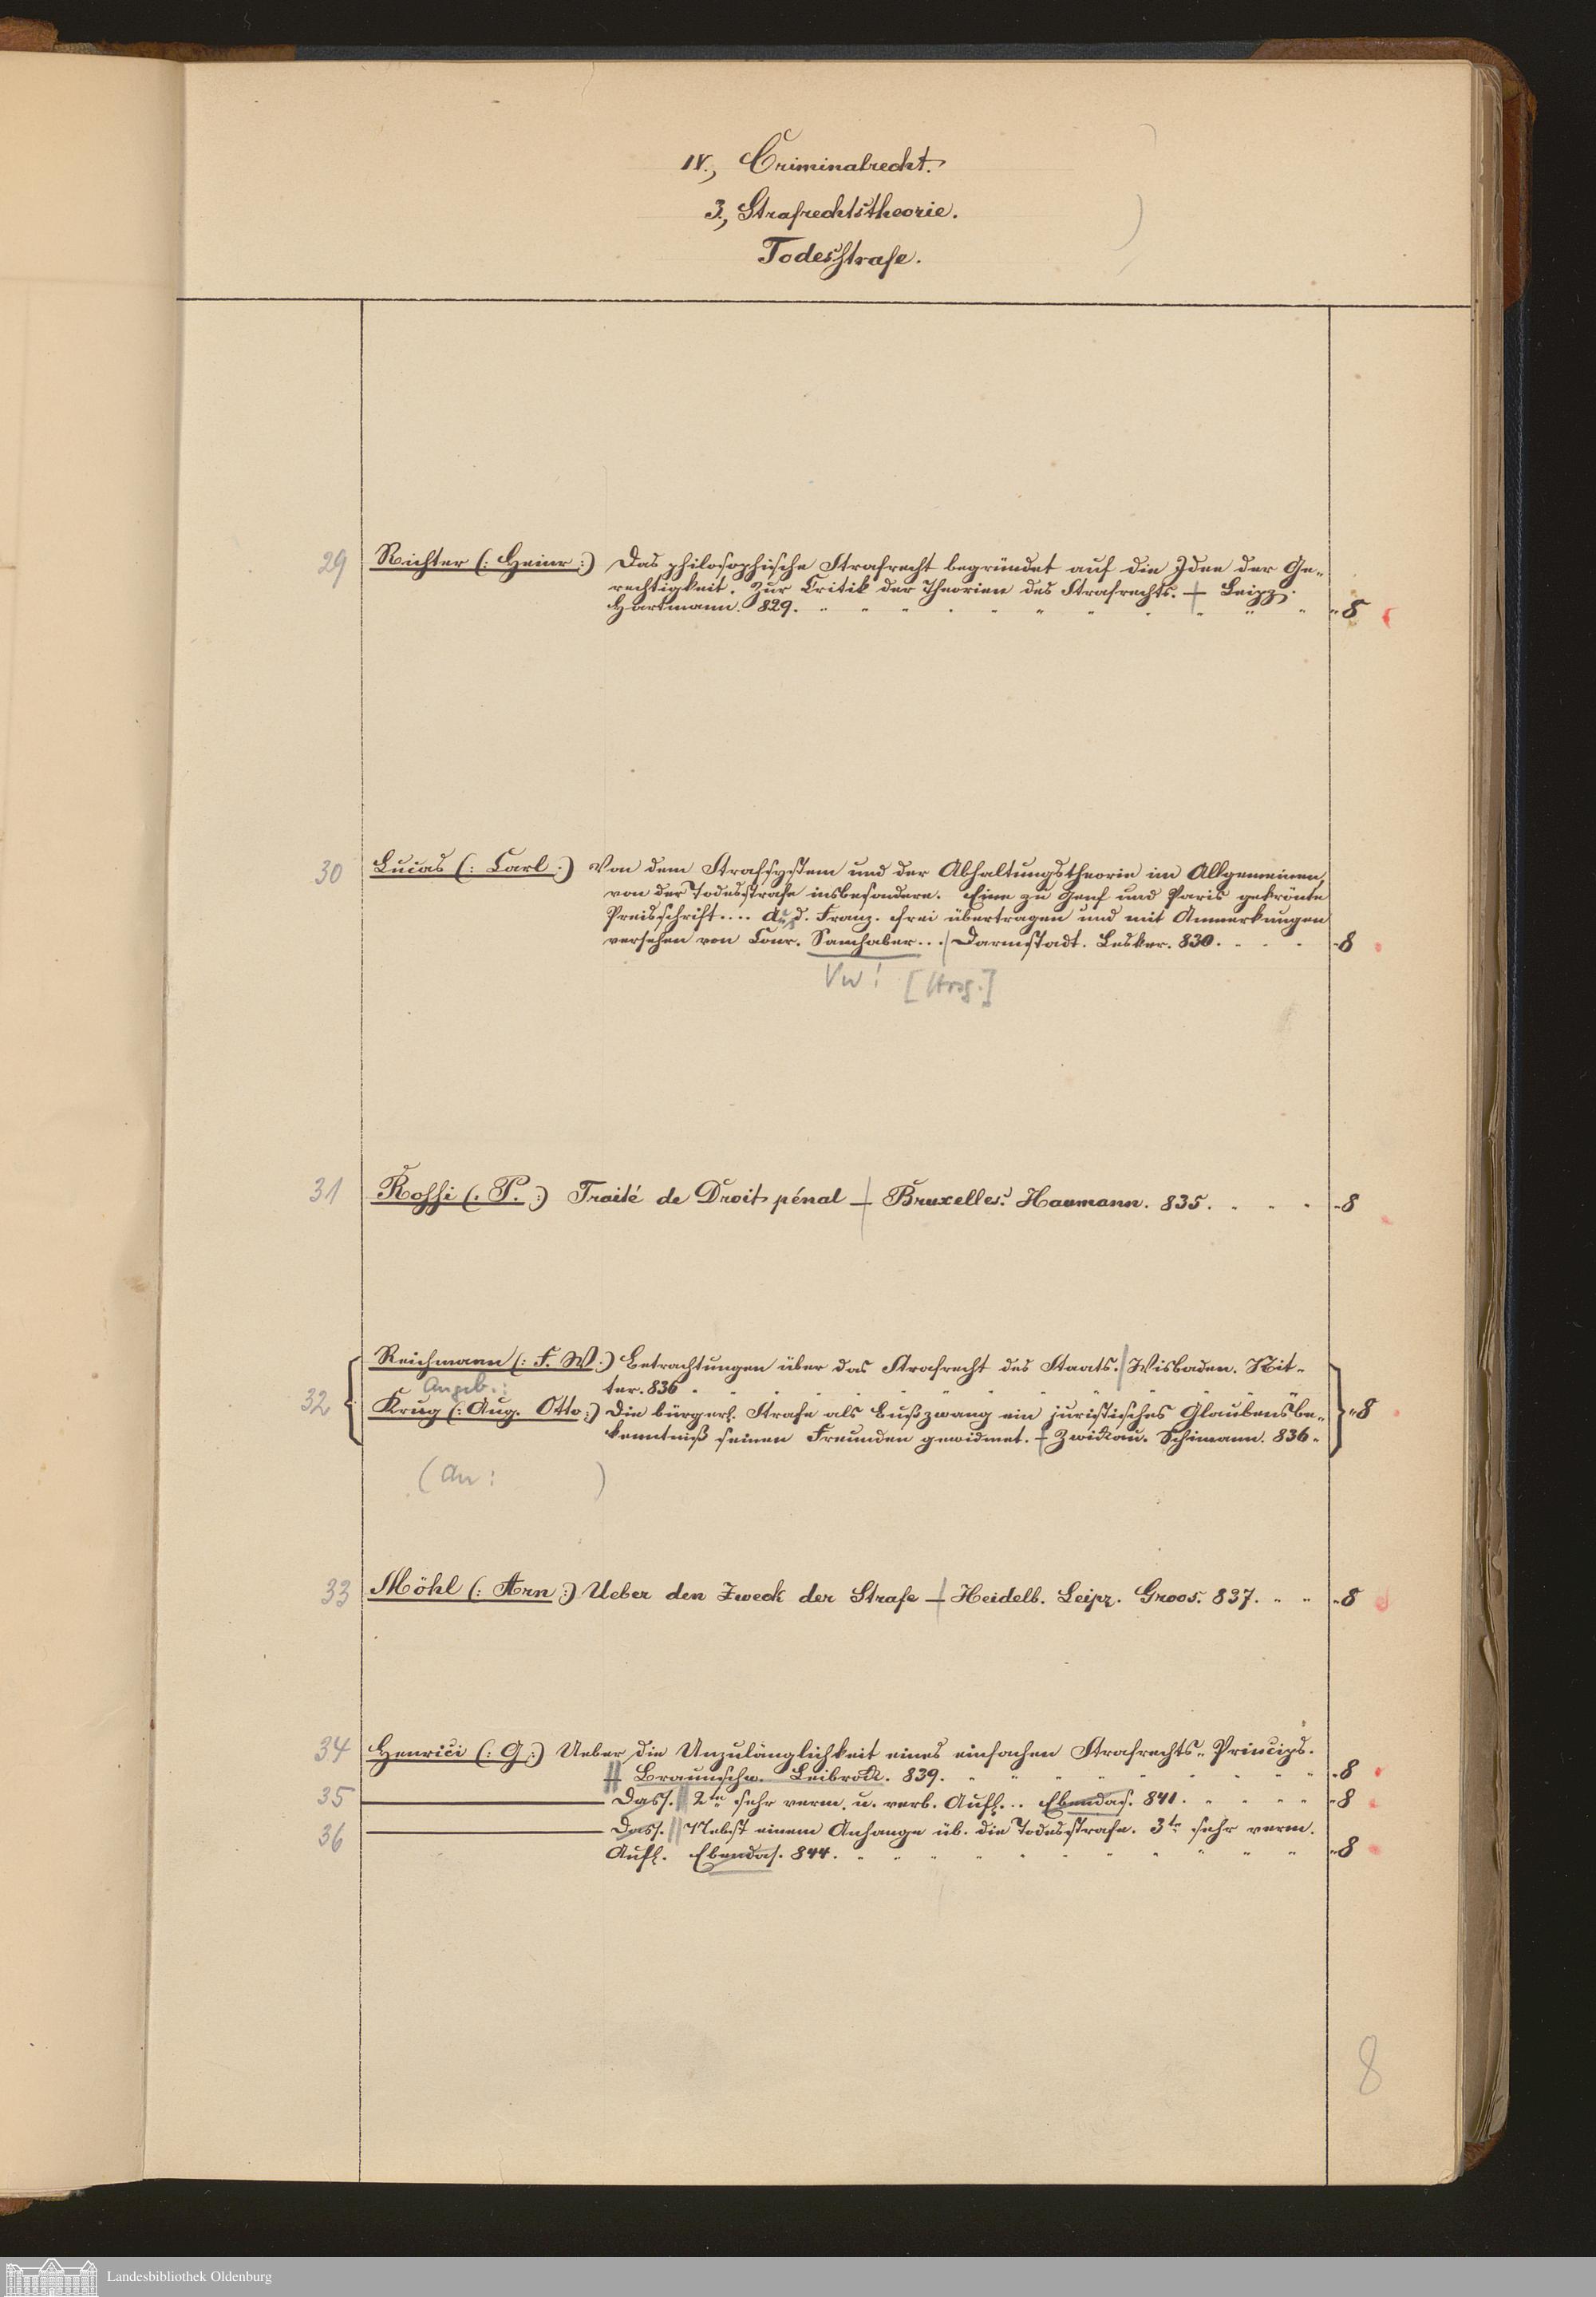 IV., Criminalrecht.
3., Strafrechtstheorie.
Todesstrafe.
29 Richter (: Heinr :) Das philosophische Strafrecht begründet auf die Idee der Ge-
rechtigkeit. Zur Critik der Theorien des Strafrechts. + Leipz.
Hartmann. 829. 8
30 Lucas (: Carl :) Von dem Strafsystem und der Abhaltungstheorie im Allgemeinen,
von der Todesstrafe insbesondere. Eine zu Genf und Paris gekrönte
Preisschrift.... Aus d. Franz. frei übertragen und mit Anmerkungen
versehen von Conr. Samhaber... / Darmstadt. Lesker. 830. 8
Vw! [Hrsg.]
31 Rossi (: P. :) Traité de Droit pénal + Bruxelles. Haumann. 835. 8
Reichmann (: F. W :) Betrachtungen über das Strafrecht des Staats. / Wisbaden. Rit-
ter. 836
Angeb.:
32 Krug (: Aug. Otto :) Die bürgerl. Strafe als Bußzwang ein juristisches Glaubensbe- 8
kenntniß seinen Freunden gewidmet. + Zwickau. Schimann. 836.
(An: )
33 Möhl (: Arn :) Ueber den Zweck der Strafe + Heidelb. Leipz. Groos. 837. 8
34 Henrici (: G :) Ueber die Unzulänglichkeit eines einfachen Strafrechts-Princips.
Braunschw. Leibrock. 839. 8
35 Dass. // 2te sehr verm. u. verb. Aufl... Ebendas. 841. 8
36 Dass. // Nebst einem Anhange üb. die Todesstrafe. 3te sehr verm.
Aufl. Ebendas. 844. 8
8
Landesbibliothek Oldenburg